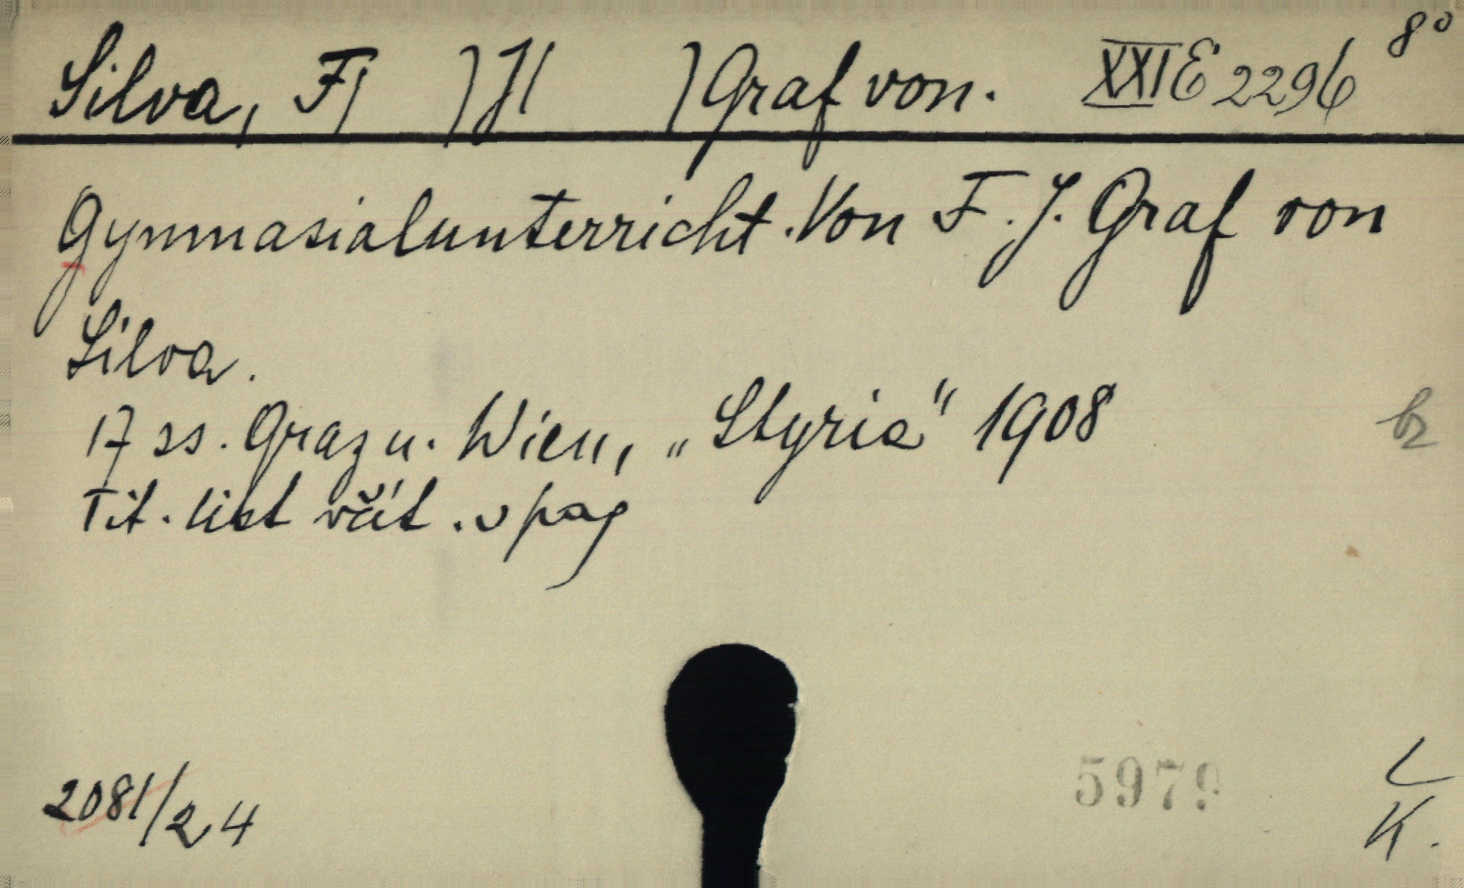 Silva, F/ )J/ )Graf von. XXI E 2296 8°
Gymnasialunterricht. Von F. J. Graf von
Silva.
17 ss. Graz u. Wien, „Styria" 1908
bz
Tit. list včít. v pag
2081/24
5979
L
K.